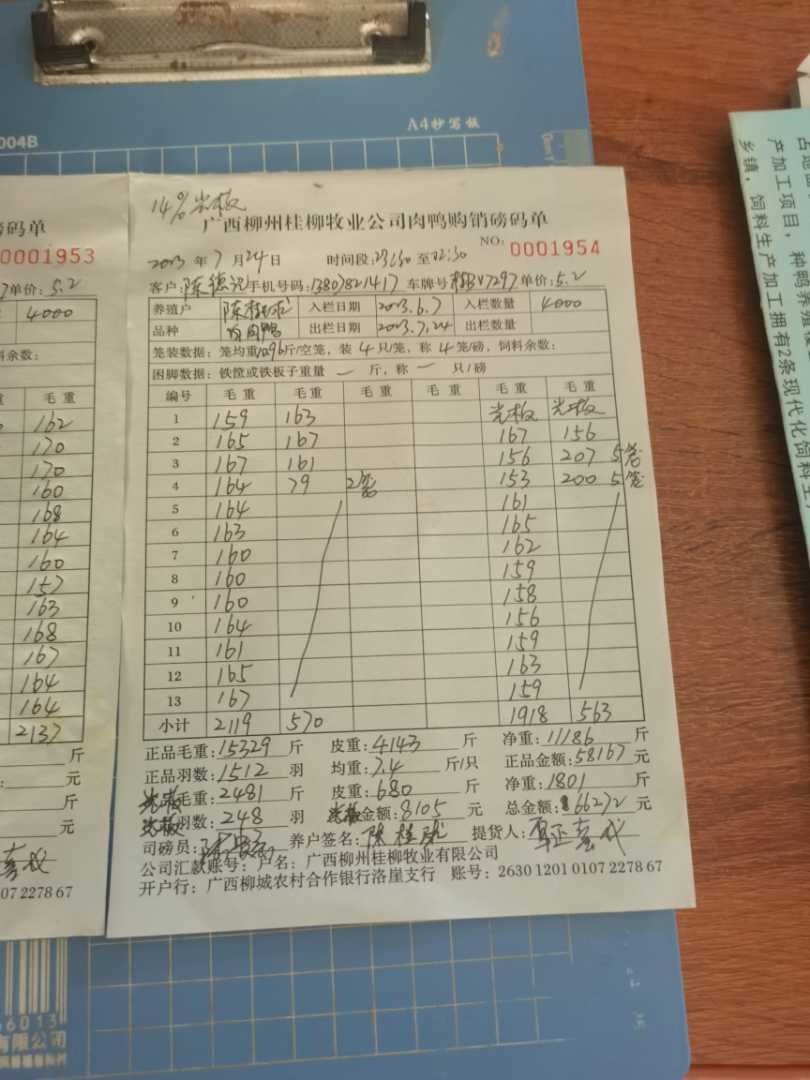 004B
A4抄写板
磅码单
0001953
单价:5.2
4000
料余数:
重 毛重
162
170
170
160
168
164
160
157
163
168
167
164
164
2137
斤
元
斤
元
0107 2278 67
14%光板
广西柳州桂柳牧业公司肉鸭购销磅码单
NO: 0001954
2023年7月24日 时间段:23:50至02:30
客户: 手机号码:13807821417 车牌号 单价:5.2
养殖户 入栏日期 2023.6.7 入栏数量 4000
品种 肉鸭 出栏日期 2023.7.24 出栏数量
笼装数据: 笼均重 斤/空笼,装4只/笼,称4笼/磅,饲料余数:
困脚数据: 铁筐或铁板子重量 一 斤,称 一 只/磅
编号 毛重 毛重 毛重 毛重 毛重 毛重
1 159 163 光板 光板
2 165 167 167 156
3 167 161 156 207 5笼
4 164 79 2笼 153 200 5笼
5 164 161
6 163 165
7 160 162
8 160 159
9 160 158
10 164 156
11 161 159
12 165 163
13 167 159
小计 2119 570 1918 563
正品毛重:15329斤 皮重:4143斤 净重:11186斤
正品羽数:1512羽 均重:7.4斤/只 正品金额:58167元
光板毛重:2481斤 皮重:680斤 净重:1801斤
光板羽数:248羽 光板金额:8105元 总金额:66272元
司磅员: 养户签名: 提货人:
公司汇款账号: 户名:广西柳州桂柳牧业有限公司
开户行:广西柳城农村合作银行洛崖支行 账号:2630 1201 0107 2278 67
6013
有限公司
产加工项目,种鸭养殖
乡镇,饲料生产加工拥有2条现代化饲料生